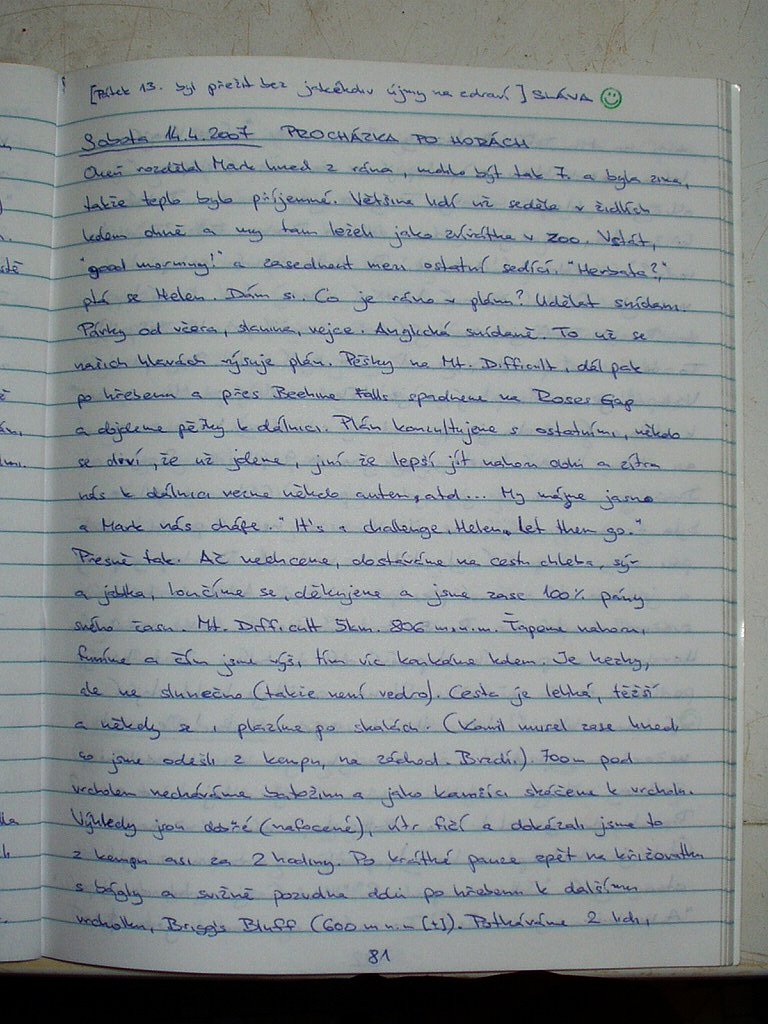 [Pátek 13. byl přežit bez jakékoliv újmy na zdraví] SLÁVA
Sobota 14.4.2007 PROCHÁZKA PO HORÁCH
Oheň rozdělal Mark hned z rána, mohlo být tak 7. a byla zima,
takže teplo bylo příjemné. Většina lidí už seděla v židlích
kolem ohně a my tam leželi jako zvířátka v ZOO. Vstát,
"good morning!" a zasednout mezi ostatní sedící. "Herbata?",
ptá se Helen. Dám si. Co je ráno v plánu? Udělat snídani.
Párky od včera, slanina, vejce. Anglická snídaně. To už se
našich hlavách rýsuje plán. Pěšky na Mt. Difficult, dál pak
po hřebenu a přes Beehive Falls spadneme na Roses Gap
a dojdeme pěšky k dálnici. Plán konzultujeme s ostatními, někdo
se diví, že už jdeme, jiní že lepší jít nahoru dolů a zítra
nás k dálnici vezme někdo autem, atd... My máme jasno
a Mark nás chápe. "It's a challenge, Helen, let them go."
Přesně tak. Ač nechceme, dostáváme na cestu chleba, sýr
a jablka, loučíme se, děkujeme a jsme zase 100% pány
svého času. Mt. Difficult 5km. 806 m.n.m. Ťapeme nahoru,
funíme a čím jsme výš, tím víc koukáme kolem. Je hezky,
ale ne slunečno (takže není vedro). Cesta je lehká, těžší
a někdy se i plazíme po skalách. (Kamil musel zase hned
co jsme odešli z kempu, na záchod. Brzdí.) 700m pod
vrcholem necháváme batožinu a jako kamzíci skáčeme k vrcholu.
Výhledy jsou dobré (nafocené), vítr fičí a dokázali jsme to
z kempu asi za 2 hodiny. Po krátké pauze zpět na křižovatku
s bágly a svižně pozvolna dolů po hřebenu k dalšímu
vrcholku, Briggs Bluff (600 m n.m [±]). Potkáváme 2 lidi,
81